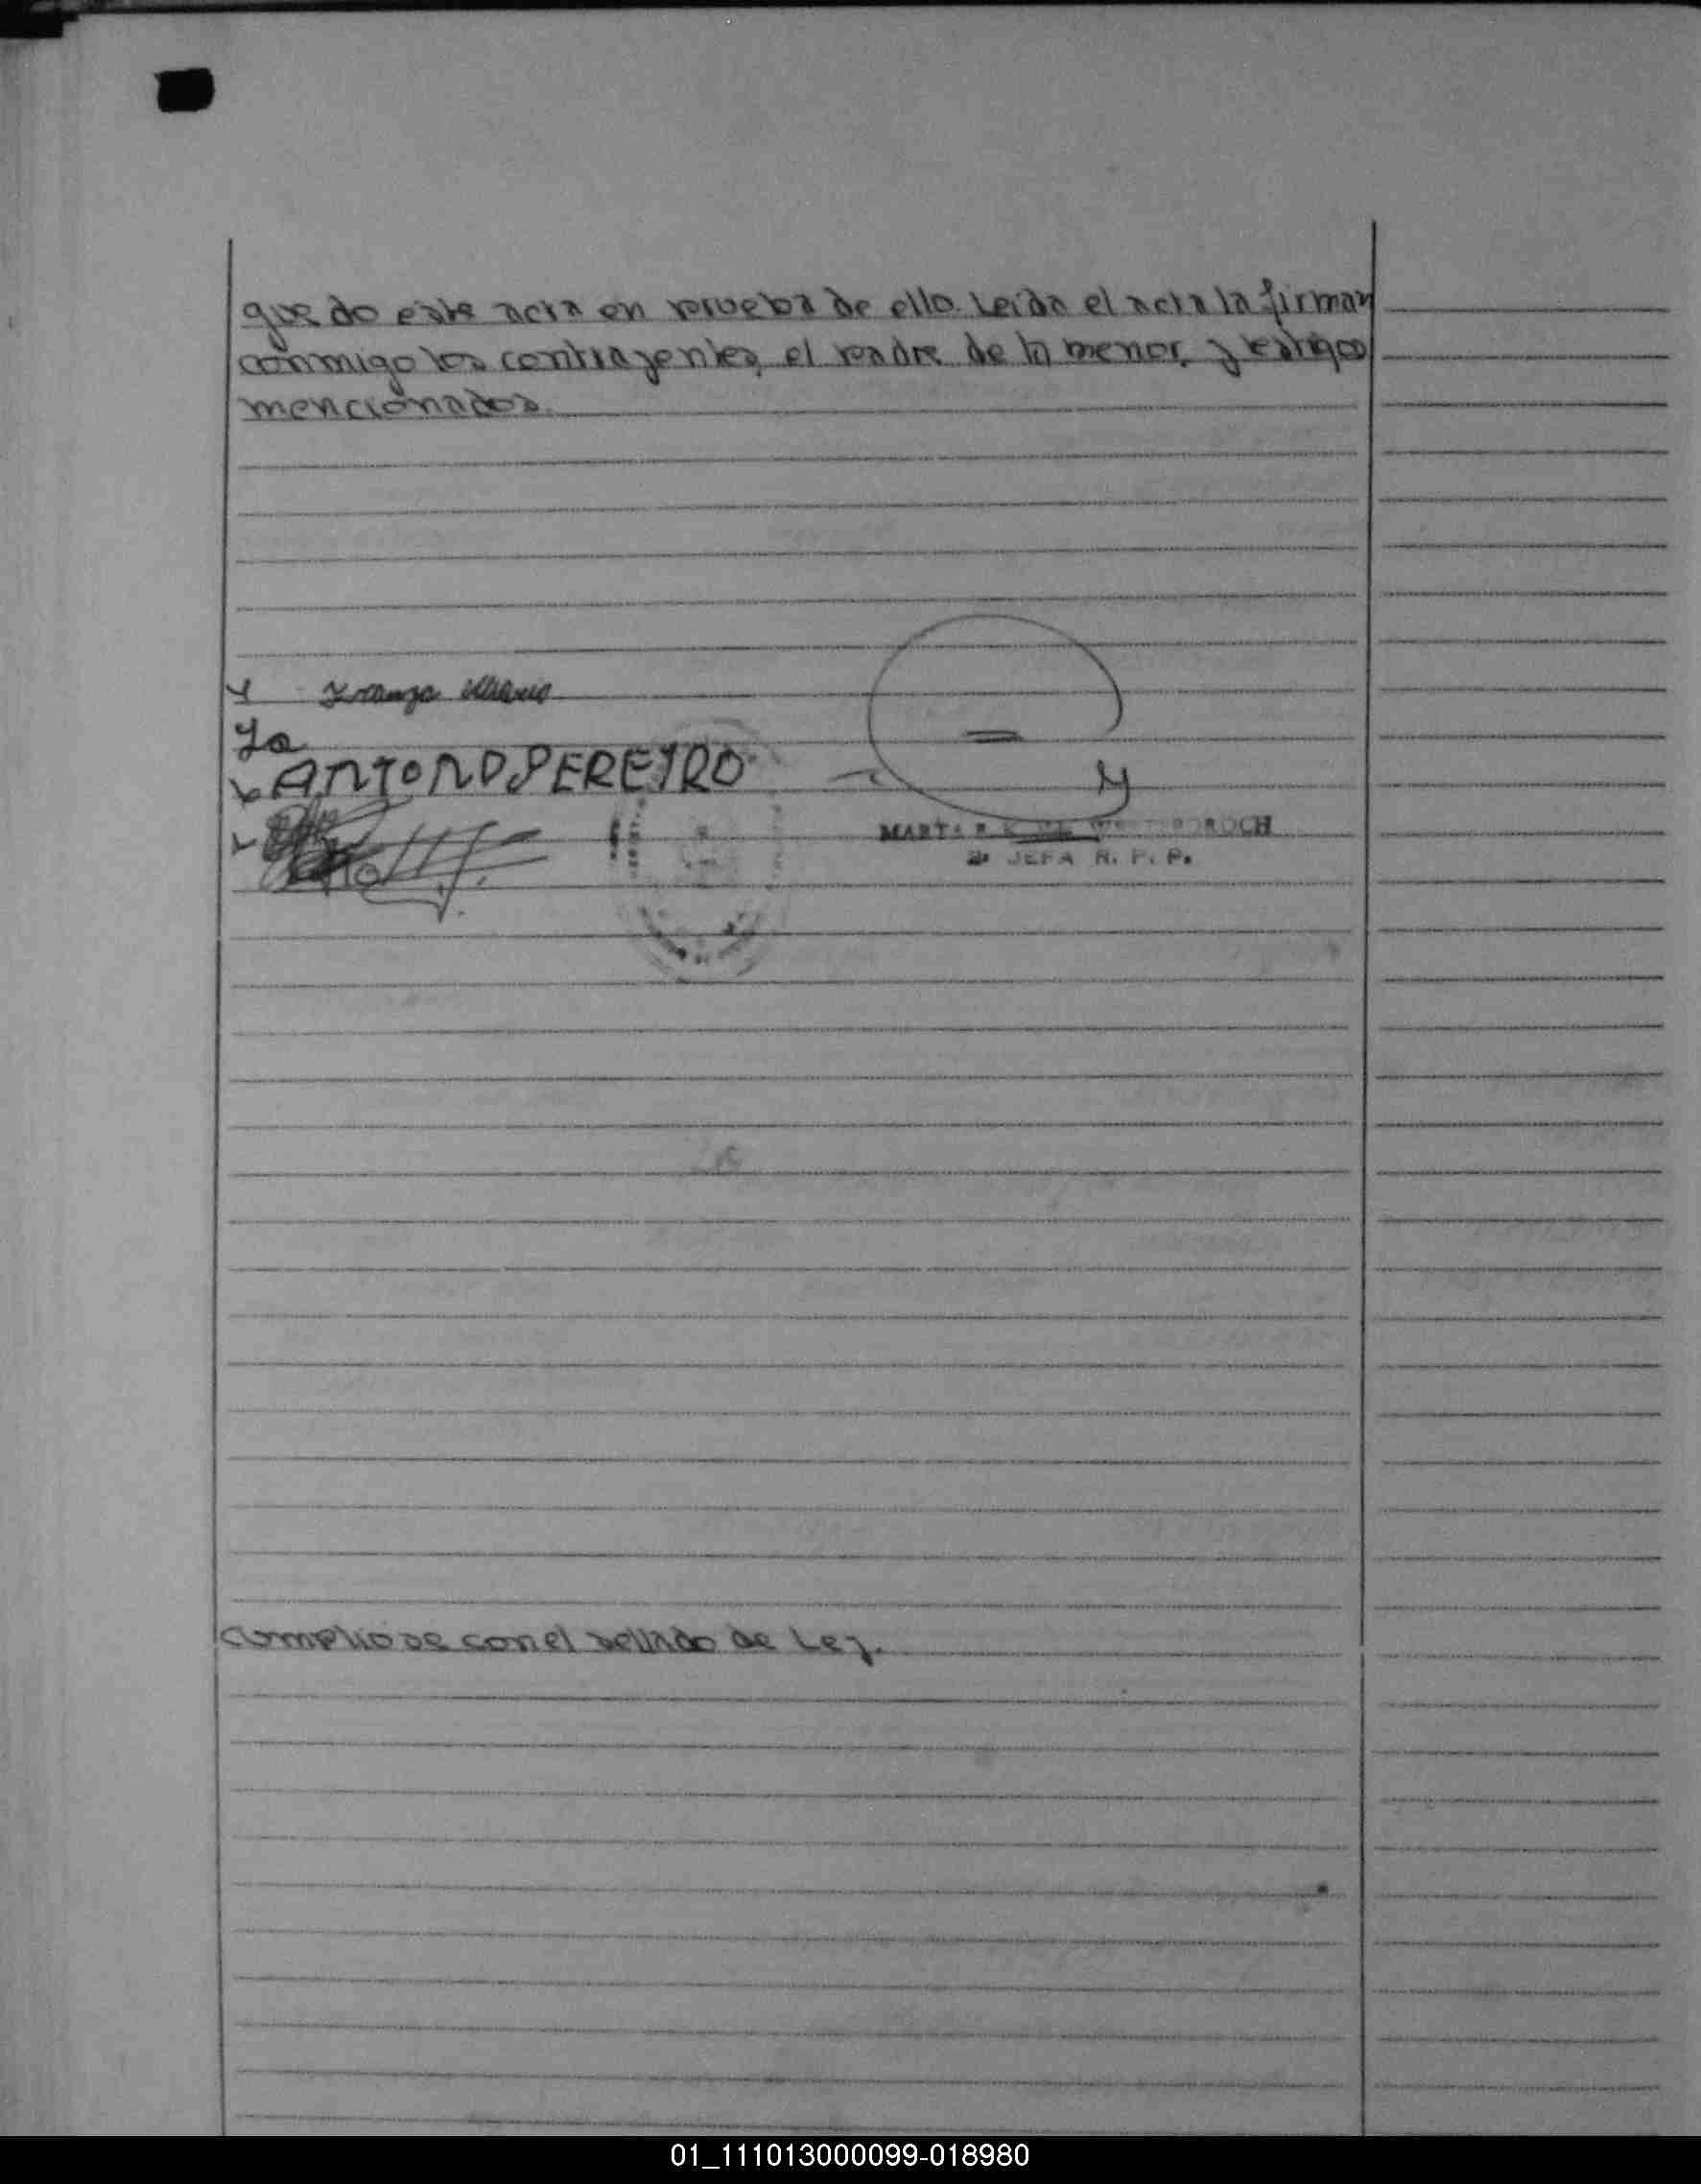 que do este acta en prueba de ello. Leida el acta la firman
conmigo los contrayentes, el padre de la menor, y testigos
mencionados.
Yo
ANTONO PEREYRO
MARTA
2ª JEFA R. P. P.
cumplio se con el sellado de Ley.
01_111013000099-018980